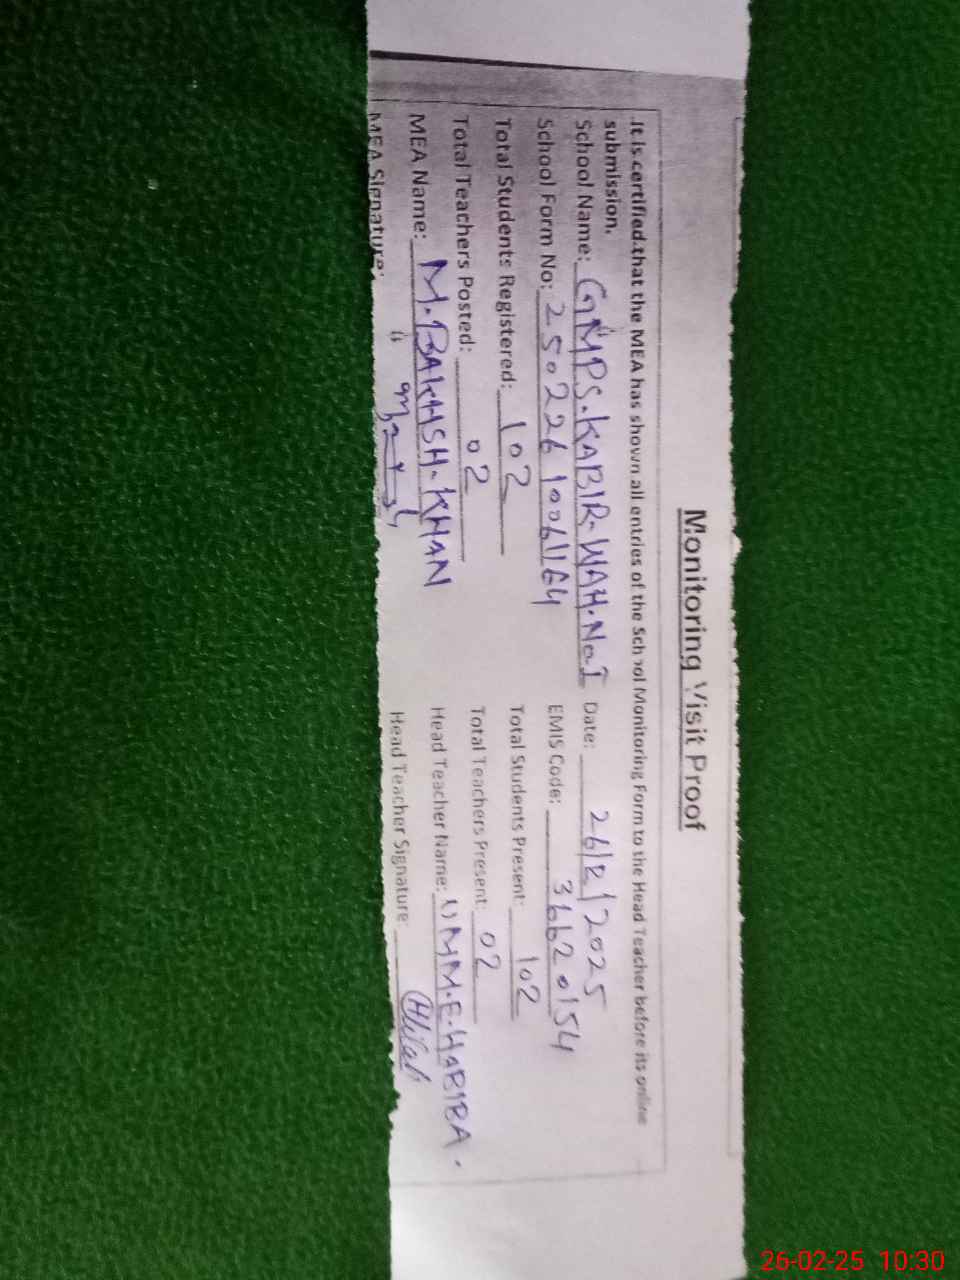 Monitoring Visit Proof
It is certified that the MEA has shown all entries of the School Monitoring Form to the Head Teacher before its online
submission.
School Name: GMPS.KABIR-WAH.No.1 Date: 26/2/2025
School Form No: 250226 10061164 EMIS Code: 36620154
Total Students Registered: 102 Total Students Present: 102
Total Teachers Posted: 02 Total Teachers Present: 02
MEA Name: M.BAKHSH-KHAN Head Teacher Name: UMM-E-HABIBA.
MEA Signature: Head Teacher Signature:
26-02-25 10:30